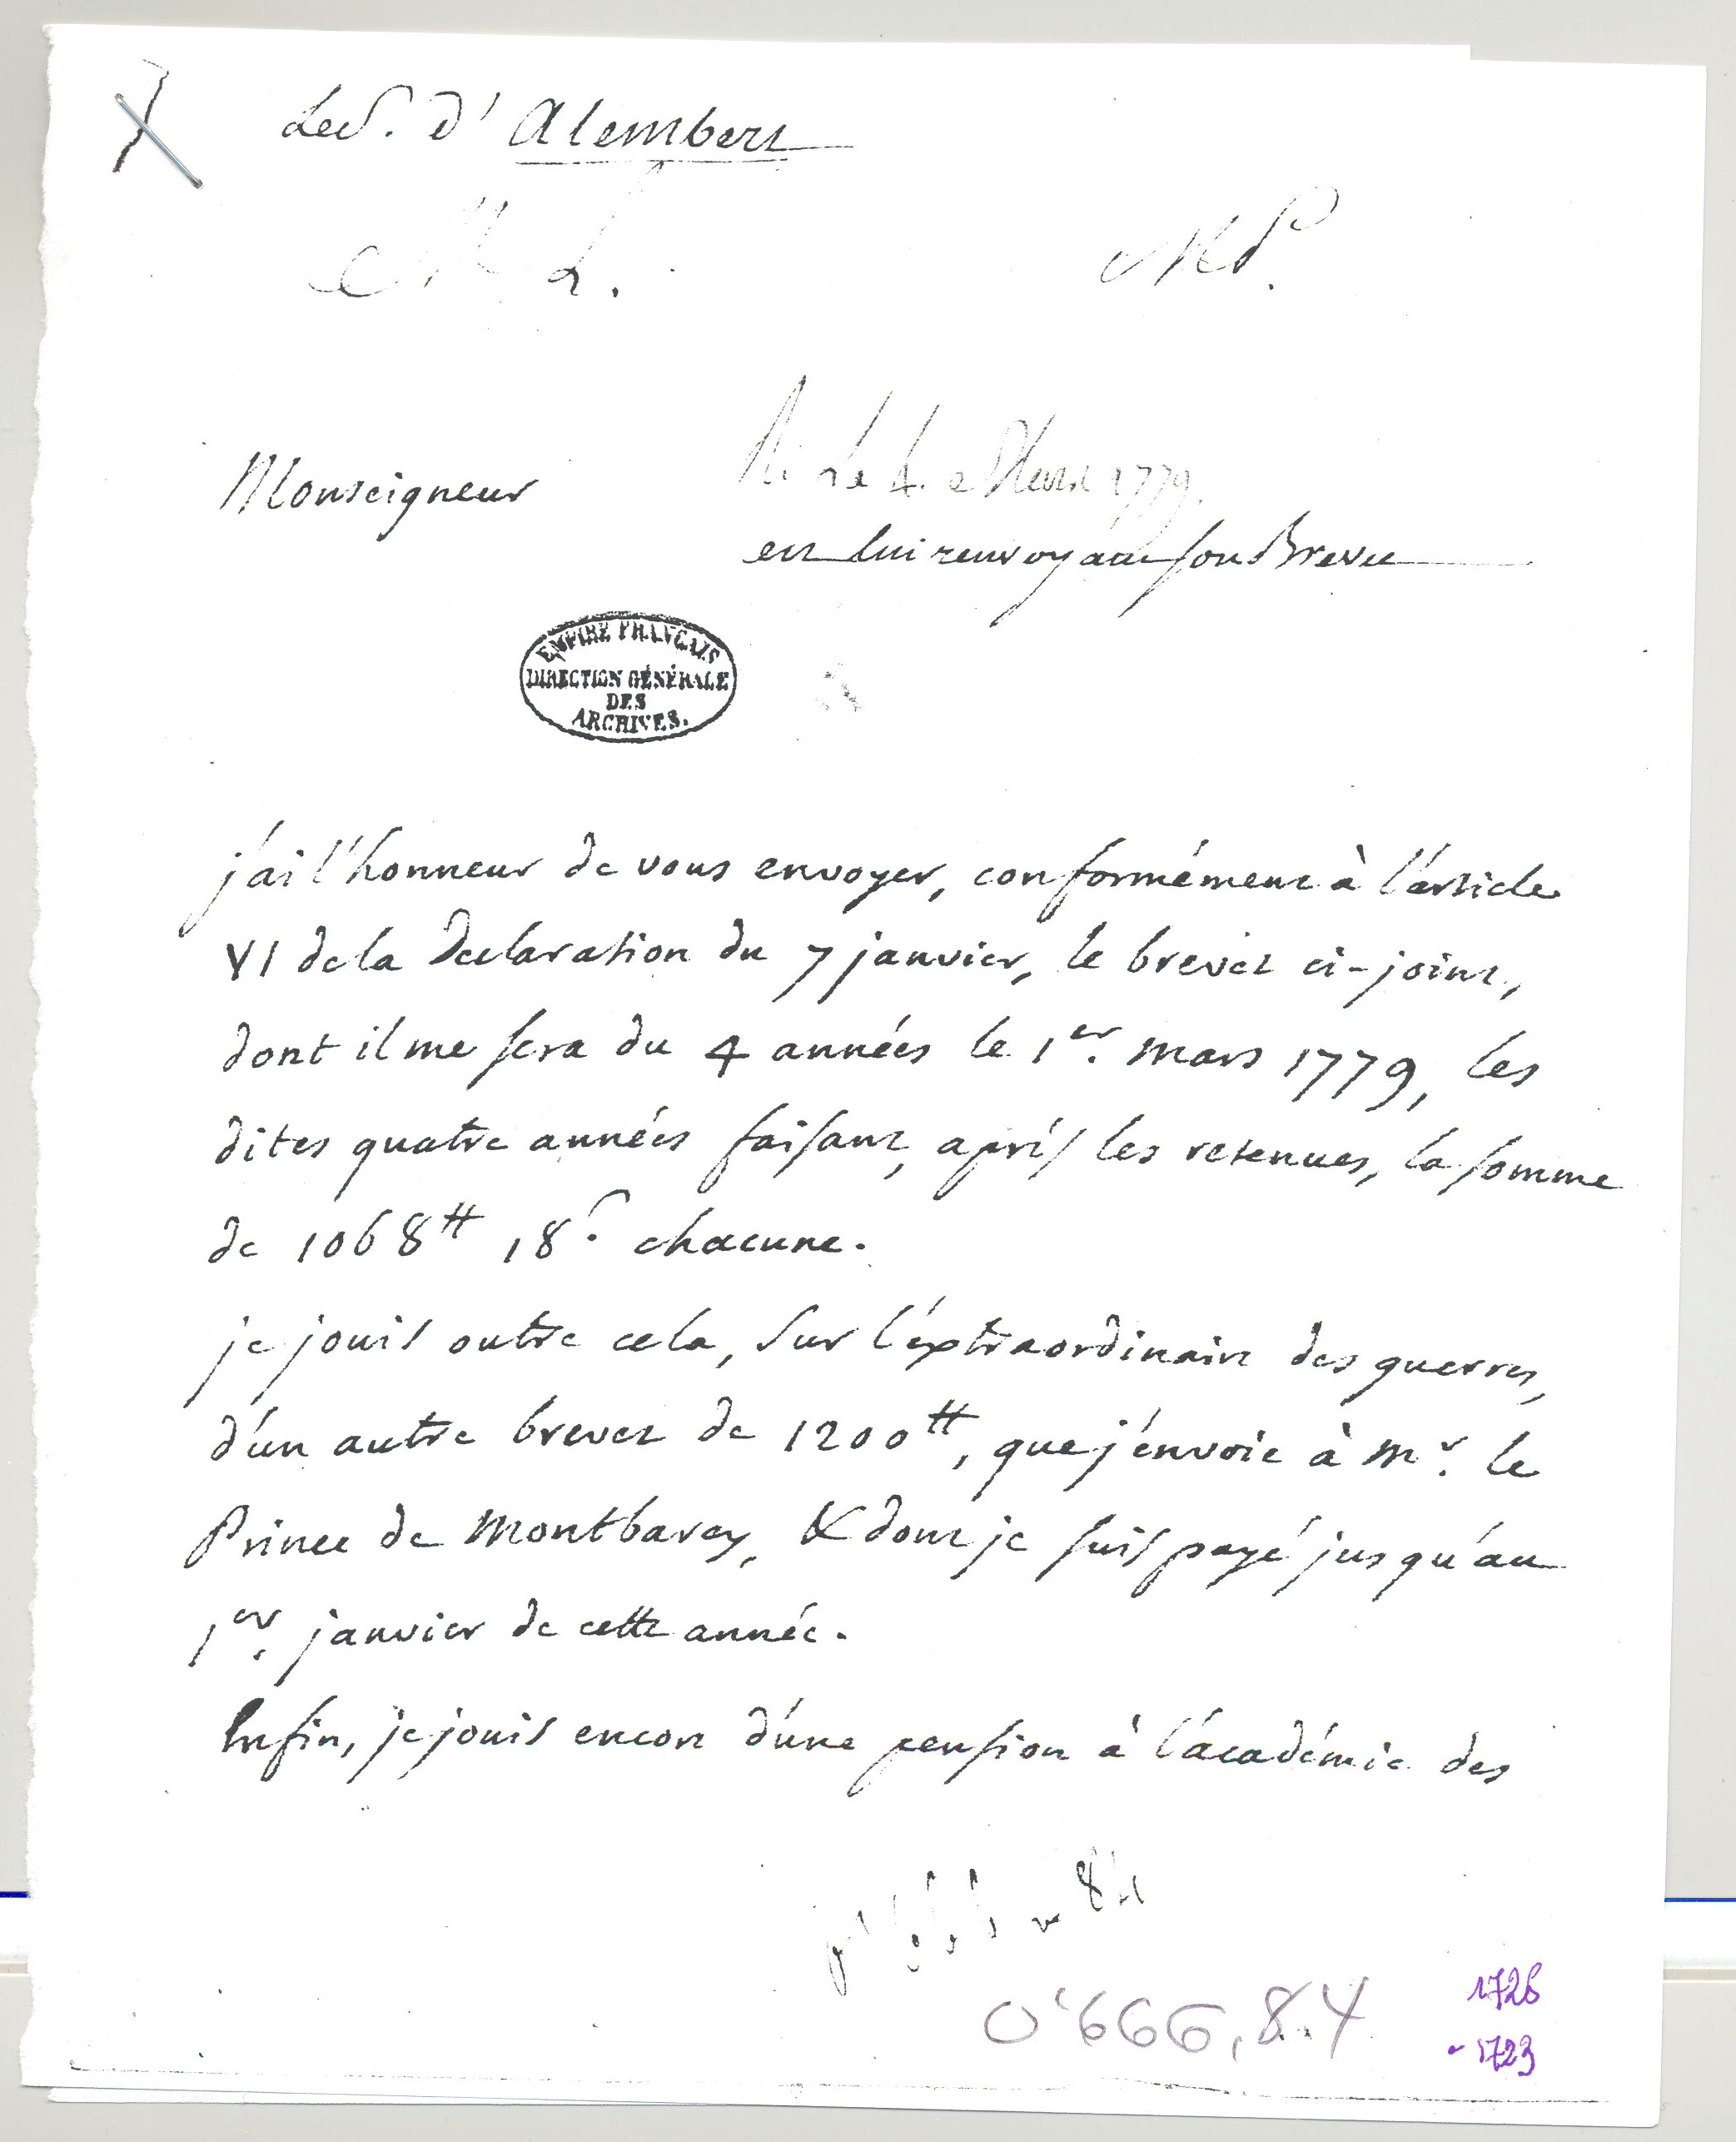 Le S. d'Alembert
M L.
MP.
R. le 4. Mars 1779.
en lui renvoyant son Brevet
Monseigneur
EMPIRE FRANÇAIS
DIRECTION GÉNÉRALE
DES
ARCHIVES.
j'ai l'honneur de vous envoyer, conformément à l'article
VI de la Declaration du 7 janvier, le brevet ci-joint,
dont il me sera du 4 années le 1er. mars 1779, les
dites quatre années faisant, après les retenues, la somme
de 1068# 18s. chacune.
je jouis outre cela, sur l'extraordinaire des guerres,
d'un autre brevet de 1200#, que j'envoie à Mr. le
Prince de Montbarey, & dont je suis payé jusqu'au
1er. janvier de cette année.
Enfin, je jouis encore d'une pension à l'académie des
84
O'666,84
1726
1723